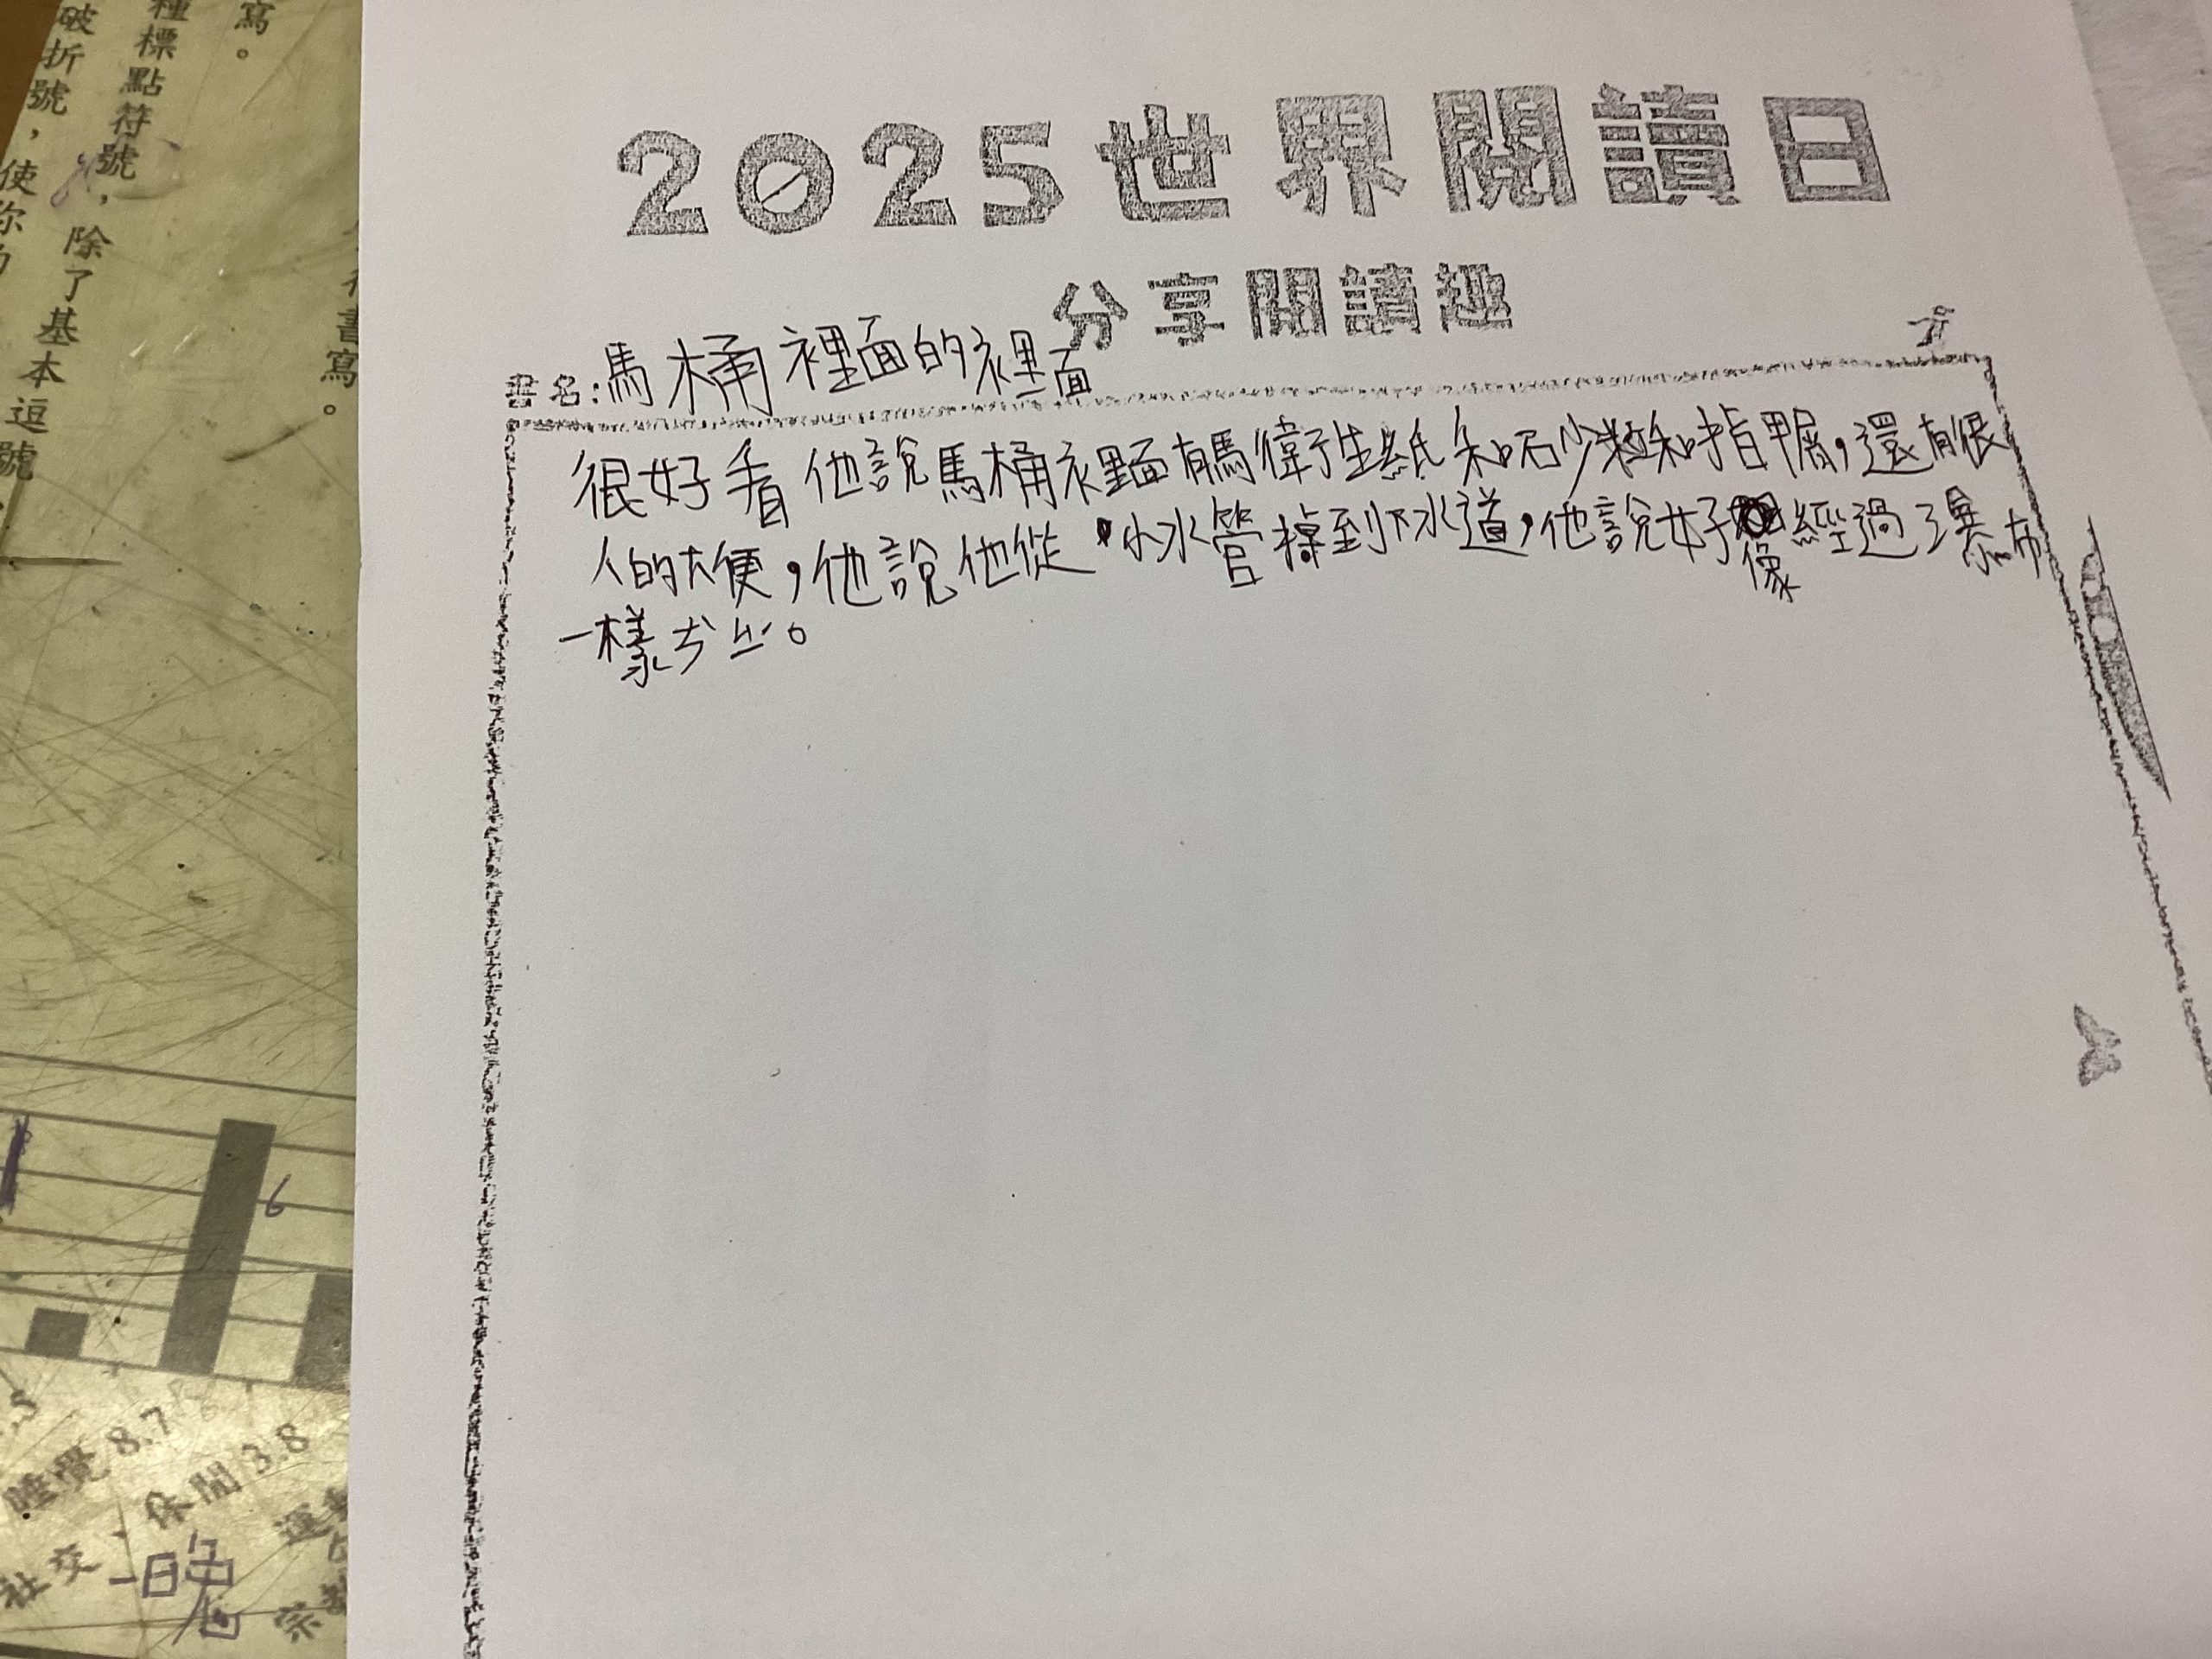 寫。
種標點符號，除了基本逗號
破折號，使你
書寫。
2025世界閱讀日
分享閱讀趣
書名:馬桶裡面的裡面
很好看他說馬桶裡面有馬衛生紙和石少粒和指甲屑，還有很
人的大便，他說他從小水管掉到下水道，他說好像經過了瀑布
一樣ㄘㄐˋ。
6
睡覺 8.7
社交、休閒 3.8
晚